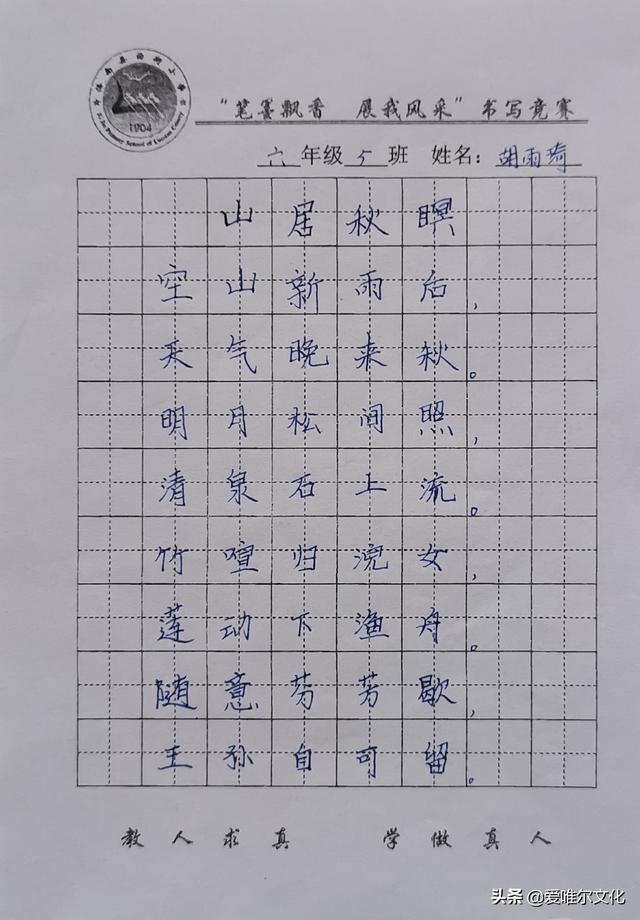 1904
"笔墨飘香 展我风采"书写竞赛
六年级5班 姓名:胡雨琦
山居秋瞑
空山新雨后,
天气晚来秋。
明月松间照,
清泉石上流。
竹喧归浣女,
莲动下渔舟。
随意芬芳歇,
王孙自可留。
教人求真 学做真人
头条 @爱唯尔文化